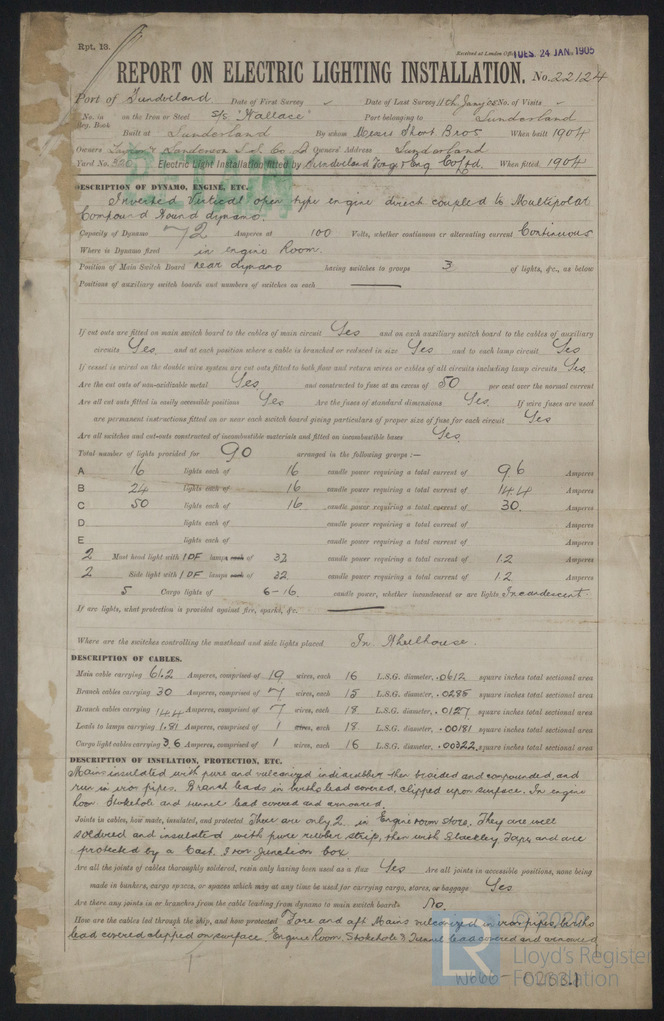 Rpt. 13.
Received at London Office TUES. 24 JAN. 1905
REPORT ON ELECTRIC LIGHTING INSTALLATION. No. 22124
Port of Sunderland Date of First Survey Date of Last Survey 11th Jany 05 No. of Visits
No. in Reg. Book on the Iron or Steel S/S "Wallace" Port belonging to Sunderland
Built at Sunderland By whom Short Bros When built 1904
Owners Sanderson & Co Ld Owners' Address Sunderland
Yard No. 320 Electric Light Installation fitted by Sunderland Forge & Eng Co Ltd. When fitted 1904
RETAIN
DESCRIPTION OF DYNAMO, ENGINE, ETC.
Inverted Vertical open type engine direct coupled to Multipolar
Compound Wound dynamo.
Capacity of Dynamo 72 Amperes at 100 Volts, whether continuous or alternating current Continuous
Where is Dynamo fixed in engine Room.
Position of Main Switch Board near dynamo having switches to groups 3 of lights, &c., as below
Positions of auxiliary switch boards and numbers of switches on each
If cut outs are fitted on main switch board to the cables of main circuit Yes and on each auxiliary switch board to the cables of auxiliary
circuits Yes and at each position where a cable is branched or reduced in size Yes and to each lamp circuit Yes
If vessel is wired on the double wire system are cut outs fitted to both flow and return wires or cables of all circuits including lamp circuits Yes
Are the cut outs of non-oxidizable metal Yes and constructed to fuse at an excess of 50 per cent over the normal current
Are all cut outs fitted in easily accessible positions Yes Are the fuses of standard dimensions Yes If wire fuses are used
are permanent instructions fitted on or near each switch board giving particulars of proper size of fuse for each circuit Yes
Are all switches and cut-outs constructed of incombustible materials and fitted on incombustible bases Yes.
Total number of lights provided for 90 arranged in the following groups :—
A 16 lights each of 16 candle power requiring a total current of 9.6 Amperes
B 24 lights each of 16 candle power requiring a total current of 14.4 Amperes
C 50 lights each of 16 candle power requiring a total current of 30. Amperes
D lights each of candle power requiring a total current of Amperes
E lights each of candle power requiring a total current of Amperes
2 Mast head light with 1 DF lamps each of 32 candle power requiring a total current of 1.2 Amperes
2 Side light with 1 DF lamps each of 32 candle power requiring a total current of 1.2 Amperes
5 Cargo lights of 6-16 candle power, whether incandescent or arc lights Incandescent.
If arc lights, what protection is provided against fire, sparks, &c.
Where are the switches controlling the masthead and side lights placed In Wheelhouse.
DESCRIPTION OF CABLES.
Main cable carrying 61.2 Amperes, comprised of 19 wires, each 16 L.S.G. diameter, .0612 square inches total sectional area
Branch cables carrying 30 Amperes, comprised of 7 wires, each 15 L.S.G. diameter, .0285 square inches total sectional area
Branch cables carrying 14.4 Amperes, comprised of 7 wires, each 18 L.S.G. diameter, .0127 square inches total sectional area
Leads to lamps carrying 1.81 Amperes, comprised of 1 wires, each 18 L.S.G. diameter, .00181 square inches total sectional area
Cargo light cables carrying 3.6 Amperes, comprised of 1 wires, each 16 L.S.G. diameter, .00322 square inches total sectional area
DESCRIPTION OF INSULATION, PROTECTION, ETC.
Mains insulated with pure and vulcanized indiarubber then braided and compounded, and
run in iron pipes. Branch leads in births lead covered, clipped upon surface. In engine
Room Stokehole and tunnel lead covered and armoured.
Joints in cables, how made, insulated, and protected There are only 2 in Engine room store. They are well
soldered and insulated with pure rubber strip, then with Stackley Tape and are
protected by a Cast Iron Junction box
Are all the joints of cables thoroughly soldered, resin only having been used as a flux Yes Are all joints in accessible positions, none being
made in bunkers, cargo spaces, or spaces which may at any time be used for carrying cargo, stores, or baggage Yes
Are there any joints in or branches from the cable leading from dynamo to main switch board No.
How are the cables led through the ship, and how protected Fore and aft Mains vulcanized in iron pipes, births
lead covered clipped on surface. Engine Room, Stokehole & Tunnel lead covered and armoured
© 2020
LR Lloyd's Register
Foundation
W666-0263.1